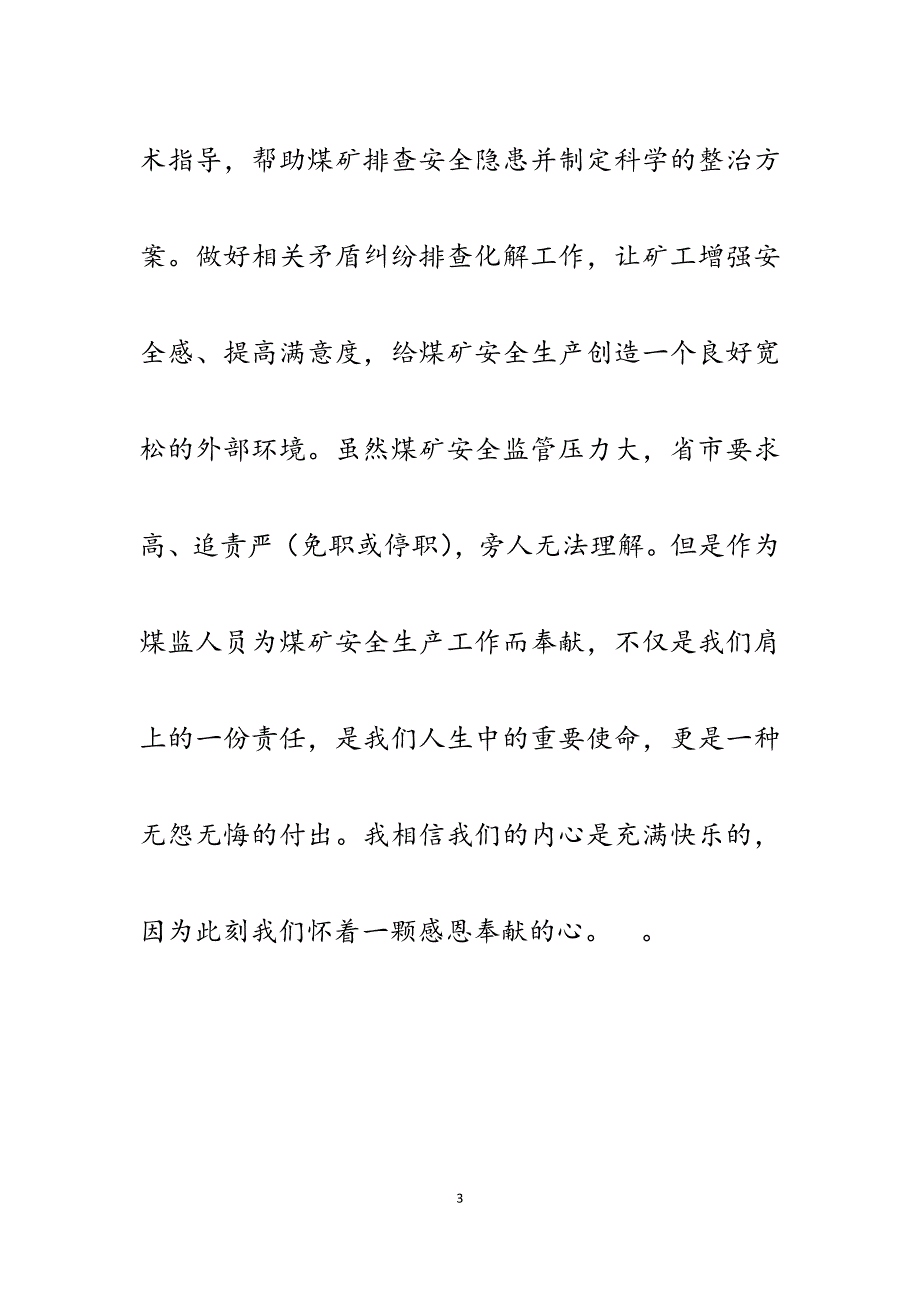 术指导，帮助煤矿排查安全隐患并制定科学的整治方
案。做好相关矛盾纠纷排查化解工作，让矿工增强安
全感、提高满意度，给煤矿安全生产创造一个良好宽
松的外部环境。虽然煤矿安全监管压力大，省市要求
高、追责严（免职或停职），旁人无法理解。但是作为
煤监人员为煤矿安全生产工作而奉献，不仅是我们肩
上的一份责任，是我们人生中的重要使命，更是一种
无怨无悔的付出。我相信我们的内心是充满快乐的，
因为此刻我们怀着一颗感恩奉献的心。　。
3